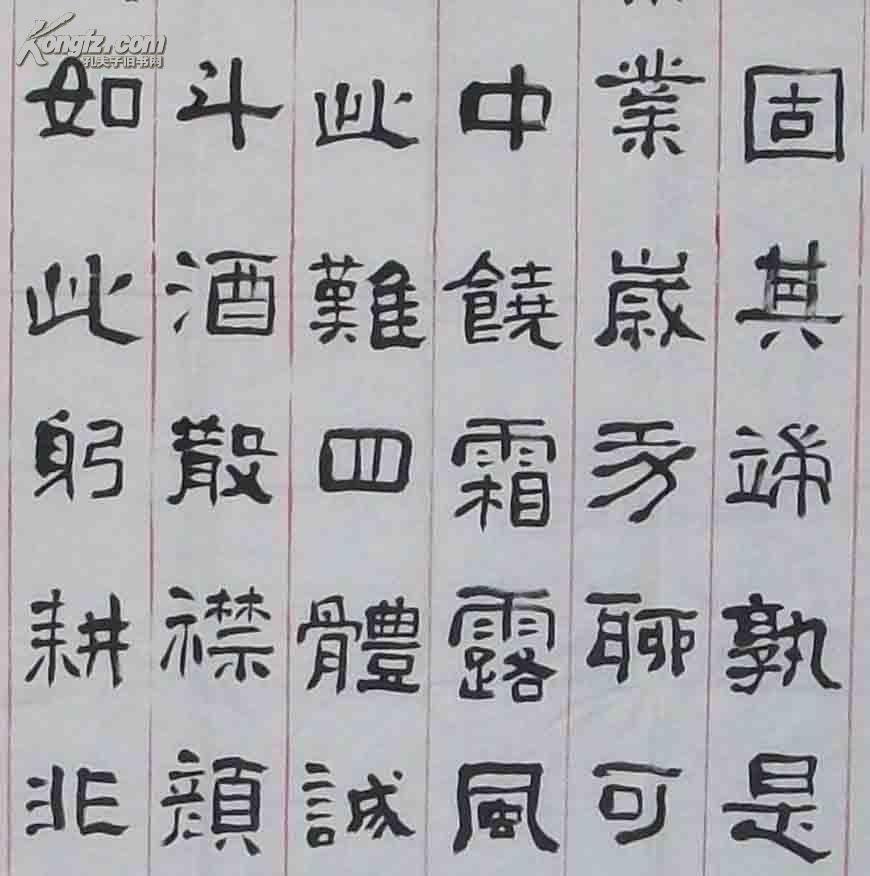 固其端孰是
業歲功聊可
中饒霜露風
此難四體誠
斗酒散襟顏
如此躬耕非
Kongfz.com
孔夫子旧书网